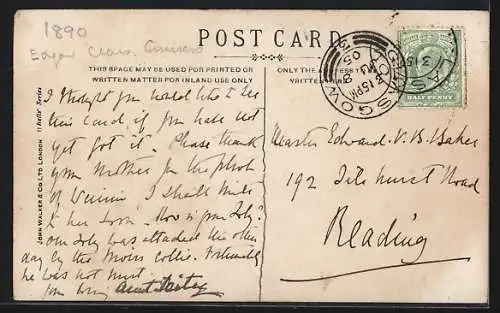 1890
Edgar Class Cruisers
POST CARD
THIS SPACE MAY BE USED FOR PRINTED OR
WRITTEN MATTER FOR INLAND USE ONLY
ONLY THE ADDRESS
WRITTEN
GLASGOW
4 15 PM
05
HALF PENNY
JOHN WALKER & CO LTD LONDON
I thought you would like to see
this card if you have not
yet got it. Please thank
your Mother for the photo
of Winnie I shall write
to her soon. How is your Toby?
our Toby was attacked the other
day by the Moirs Collie. Fortunately
he was not hurt.
your loving aunt
Master Edward. V. B. Baker
192 Tilehurst Road
Reading